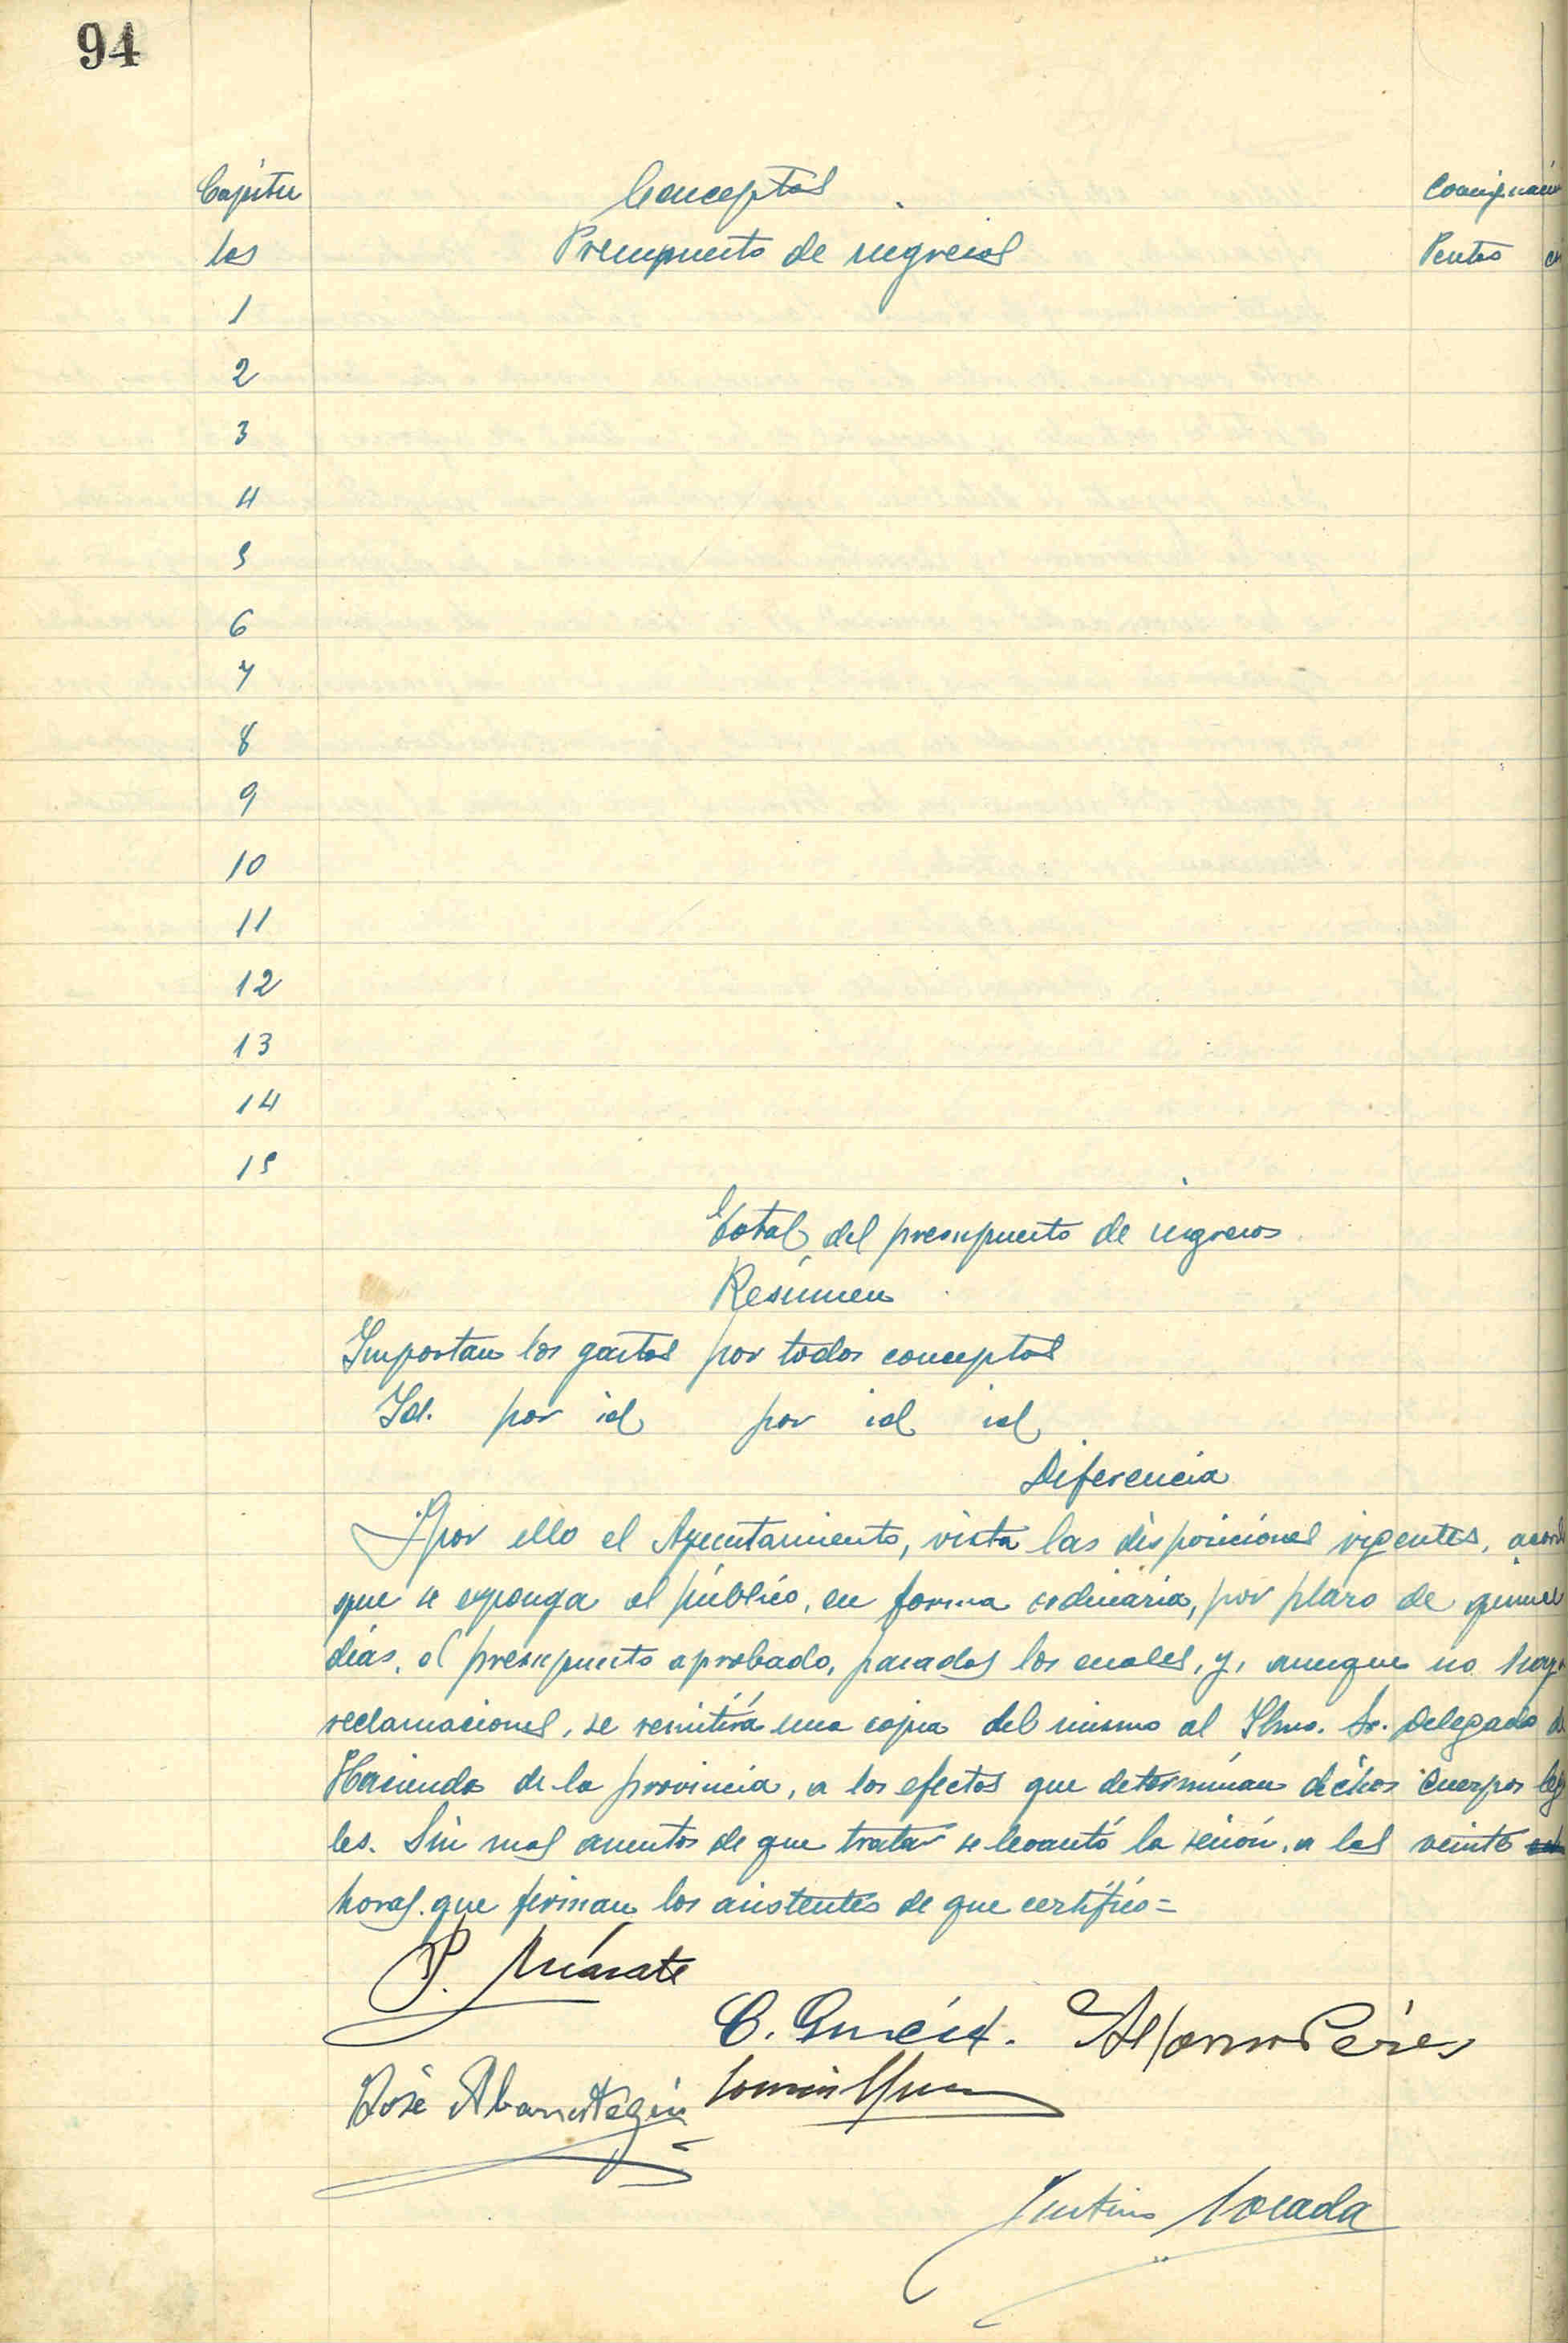 94
Capítu Conceptos Consignación
los Presupuesto de ingresos Pesetas
1
2
3
4
5
6
7
8
9
10
11
12
13
14
15
Total del presupuesto de ingresos
Resúmen
Importan los gastos por todos conceptos
Id. por id por id id
Diferencia
Y por ello el Ayuntamiento, vista las disposiciones vigentes, acord
que se exponga al público, en forma ordinaria, por plazo de quince
días, el presupuesto aprobado, pasados los cuales, y, aunque no haya
reclamaciones, se remitirá una copia del mismo al Ilmo. Sr. Delegado de
Hacienda de la provincia, a los efectos que determinan dichos cuerpos leg
les. Sin mas asuntos de que tratar se levantó la sesión, a las veinte
horas. que firman los asistentes de que certifico=
P.
C. García. Alfonso Pérez
José Abarrategui
Justino Losada